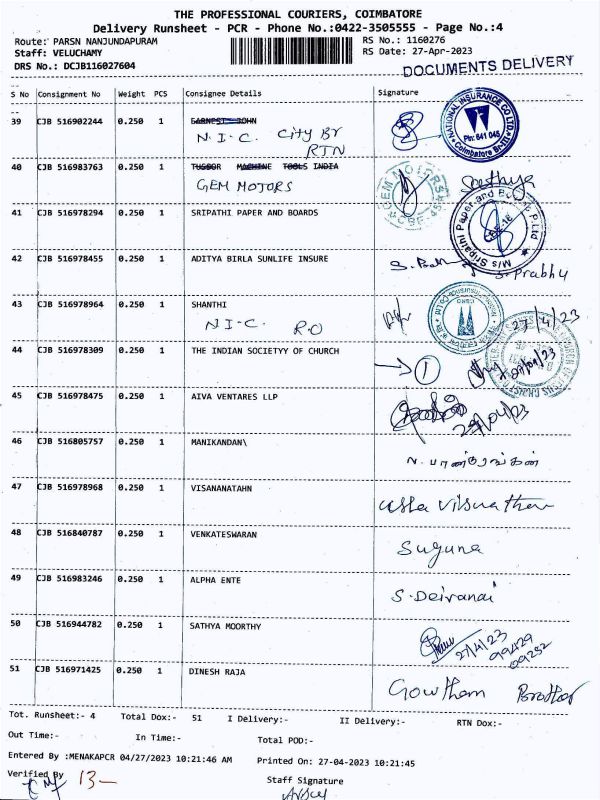 THE PROFESSIONAL COURIERS, COIMBATORE
Delivery Runsheet - PCR - Phone No.:0422-3505555 - Page No.:4
Route: PARSN NANJUNDAPURAM RS No.: 1160276
Staff: VELUCHAMY RS Date: 27-Apr-2023
DRS No.: DCJB116027604 DOCUMENTS DELIVERY
S No Consignment No Weight PCS Consignee Details Signature
39 CJB 516902244 0.250 1 EARNEST JOHN
N.I.C. City Br
RTN
NATIONAL INSURANCE CO LTD Pin: 641 045 Coimbatore
40 CJB 516983763 0.250 1 TUGBOR MACHINE TOOLS INDIA
GEM MOTORS
GEM MOTORS CBE-45 Sathya
41 CJB 516978294 0.250 1 SRIPATHI PAPER AND BOARDS
M/s Sripathi Paper and Board P.Ltd
42 CJB 516978455 0.250 1 ADITYA BIRLA SUNLIFE INSURE
S. Prabhu
43 CJB 516978964 0.250 1 SHANTHI
N.I.C. R.O
27/4/23
44 CJB 516978309 0.250 1 THE INDIAN SOCIETYY OF CHURCH
1
27/04/23
45 CJB 516978475 0.250 1 AIVA VENTARES LLP
27/04/23
46 CJB 516805757 0.250 1 MANIKANDAN\
N. பாண்டுரங்கன்
47 CJB 516978968 0.250 1 VISANANATAHN
Usha Viswanathan
48 CJB 516840787 0.250 1 VENKATESWARAN
Suguna
49 CJB 516983246 0.250 1 ALPHA ENTE
S. Deivanai
50 CJB 516944782 0.250 1 SATHYA MOORTHY
27/4/23
99429
09252
51 CJB 516971425 0.250 1 DINESH RAJA
Gowtham Brother
Tot. Runsheet:- 4 Total Dox:- 51 I Delivery:- II Delivery:- RTN Dox:-
Out Time:- In Time:- Total POD:-
Entered By :MENAKAPCR 04/27/2023 10:21:46 AM Printed On: 27-04-2023 10:21:45
Verified By 13- Staff Signature